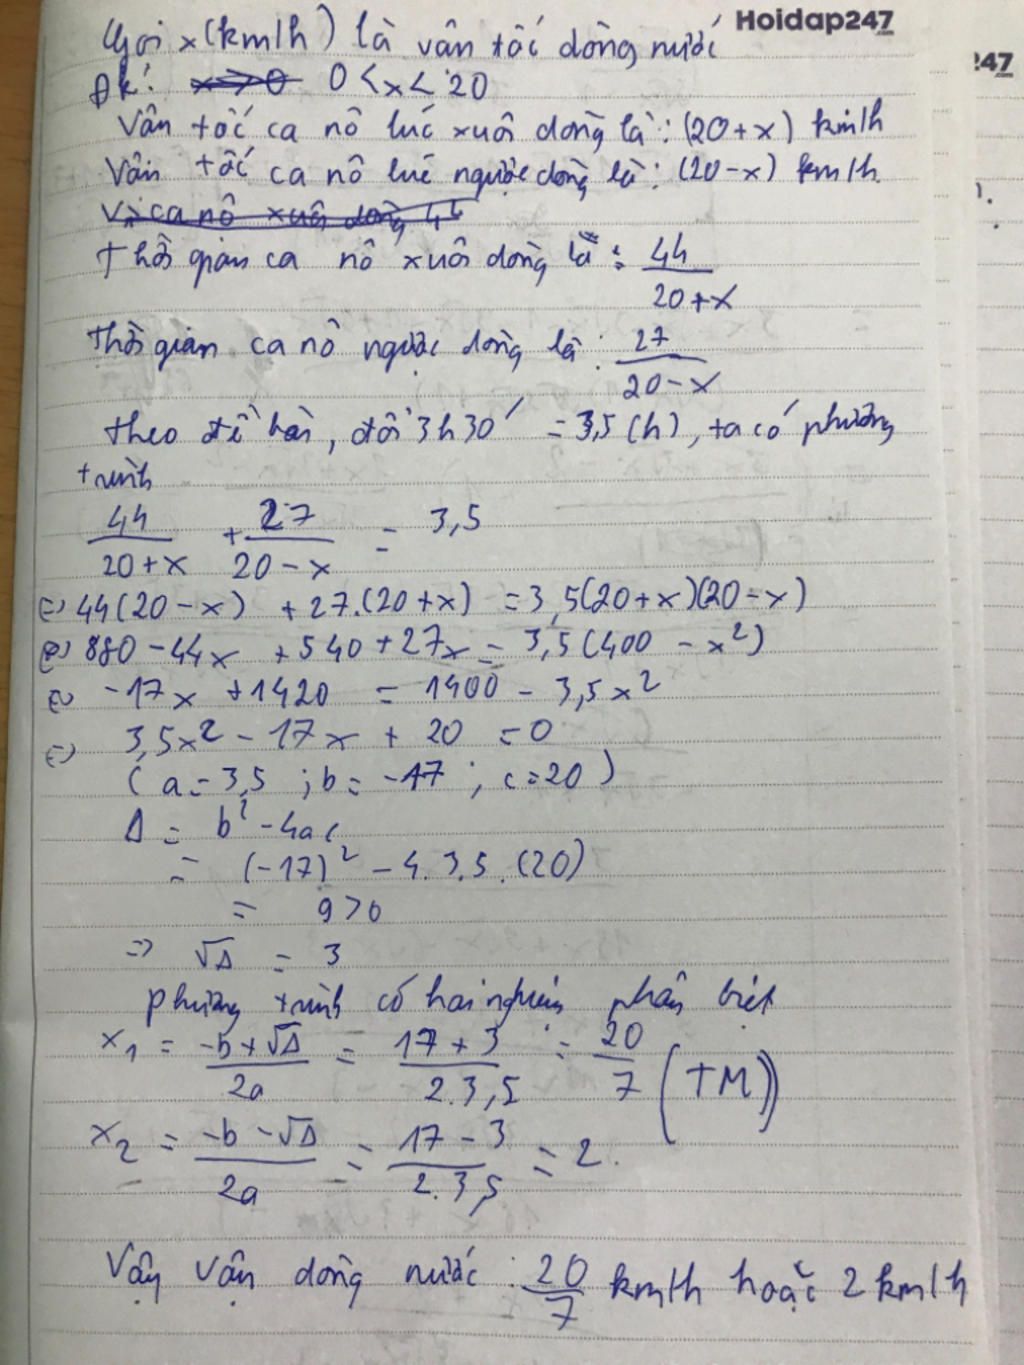 Hoidap247
Gọi x (km/h) là vân tốc dòng nước
247
Đk: x>0 0<x<20
Vân tốc ca nô lúc xuôi dòng là: (20+x) km/h
Vân tốc ca nô lúc ngược dòng là: (20-x) km/h.
Vì ca nô xuôi dòng 44
Thời gian ca nô xuôi dòng là: 44/(20+x)
Thời gian ca nô ngược dòng là: 27/(20-x)
theo đề bài, đổi 3h30' = 3,5 (h), ta có phương
trình
44/(20+x) + 27/(20-x) = 3,5
<=> 44(20-x) + 27.(20+x) = 3,5(20+x)(20-x)
<=> 880-44x +540+27x = 3,5(400 - x²)
<=> -17x +1420 = 1400 - 3,5x²
<=> 3,5x² - 17x + 20 = 0
(a=3,5 ; b= -17 ; c=20)
Δ = b² - 4ac
= (-17)² - 4.3,5.(20)
= 9>0
=> √Δ = 3
phương trình có hai nghiệm phân biệt
x₁ = (-b+√Δ)/2a = (17+3)/(2.3,5) = 20/7 (TM)
x₂ = (-b-√Δ)/2a = (17-3)/(2.3,5) = 2.
Vậy vận dòng nước : 20/7 km/h hoặc 2 km/h